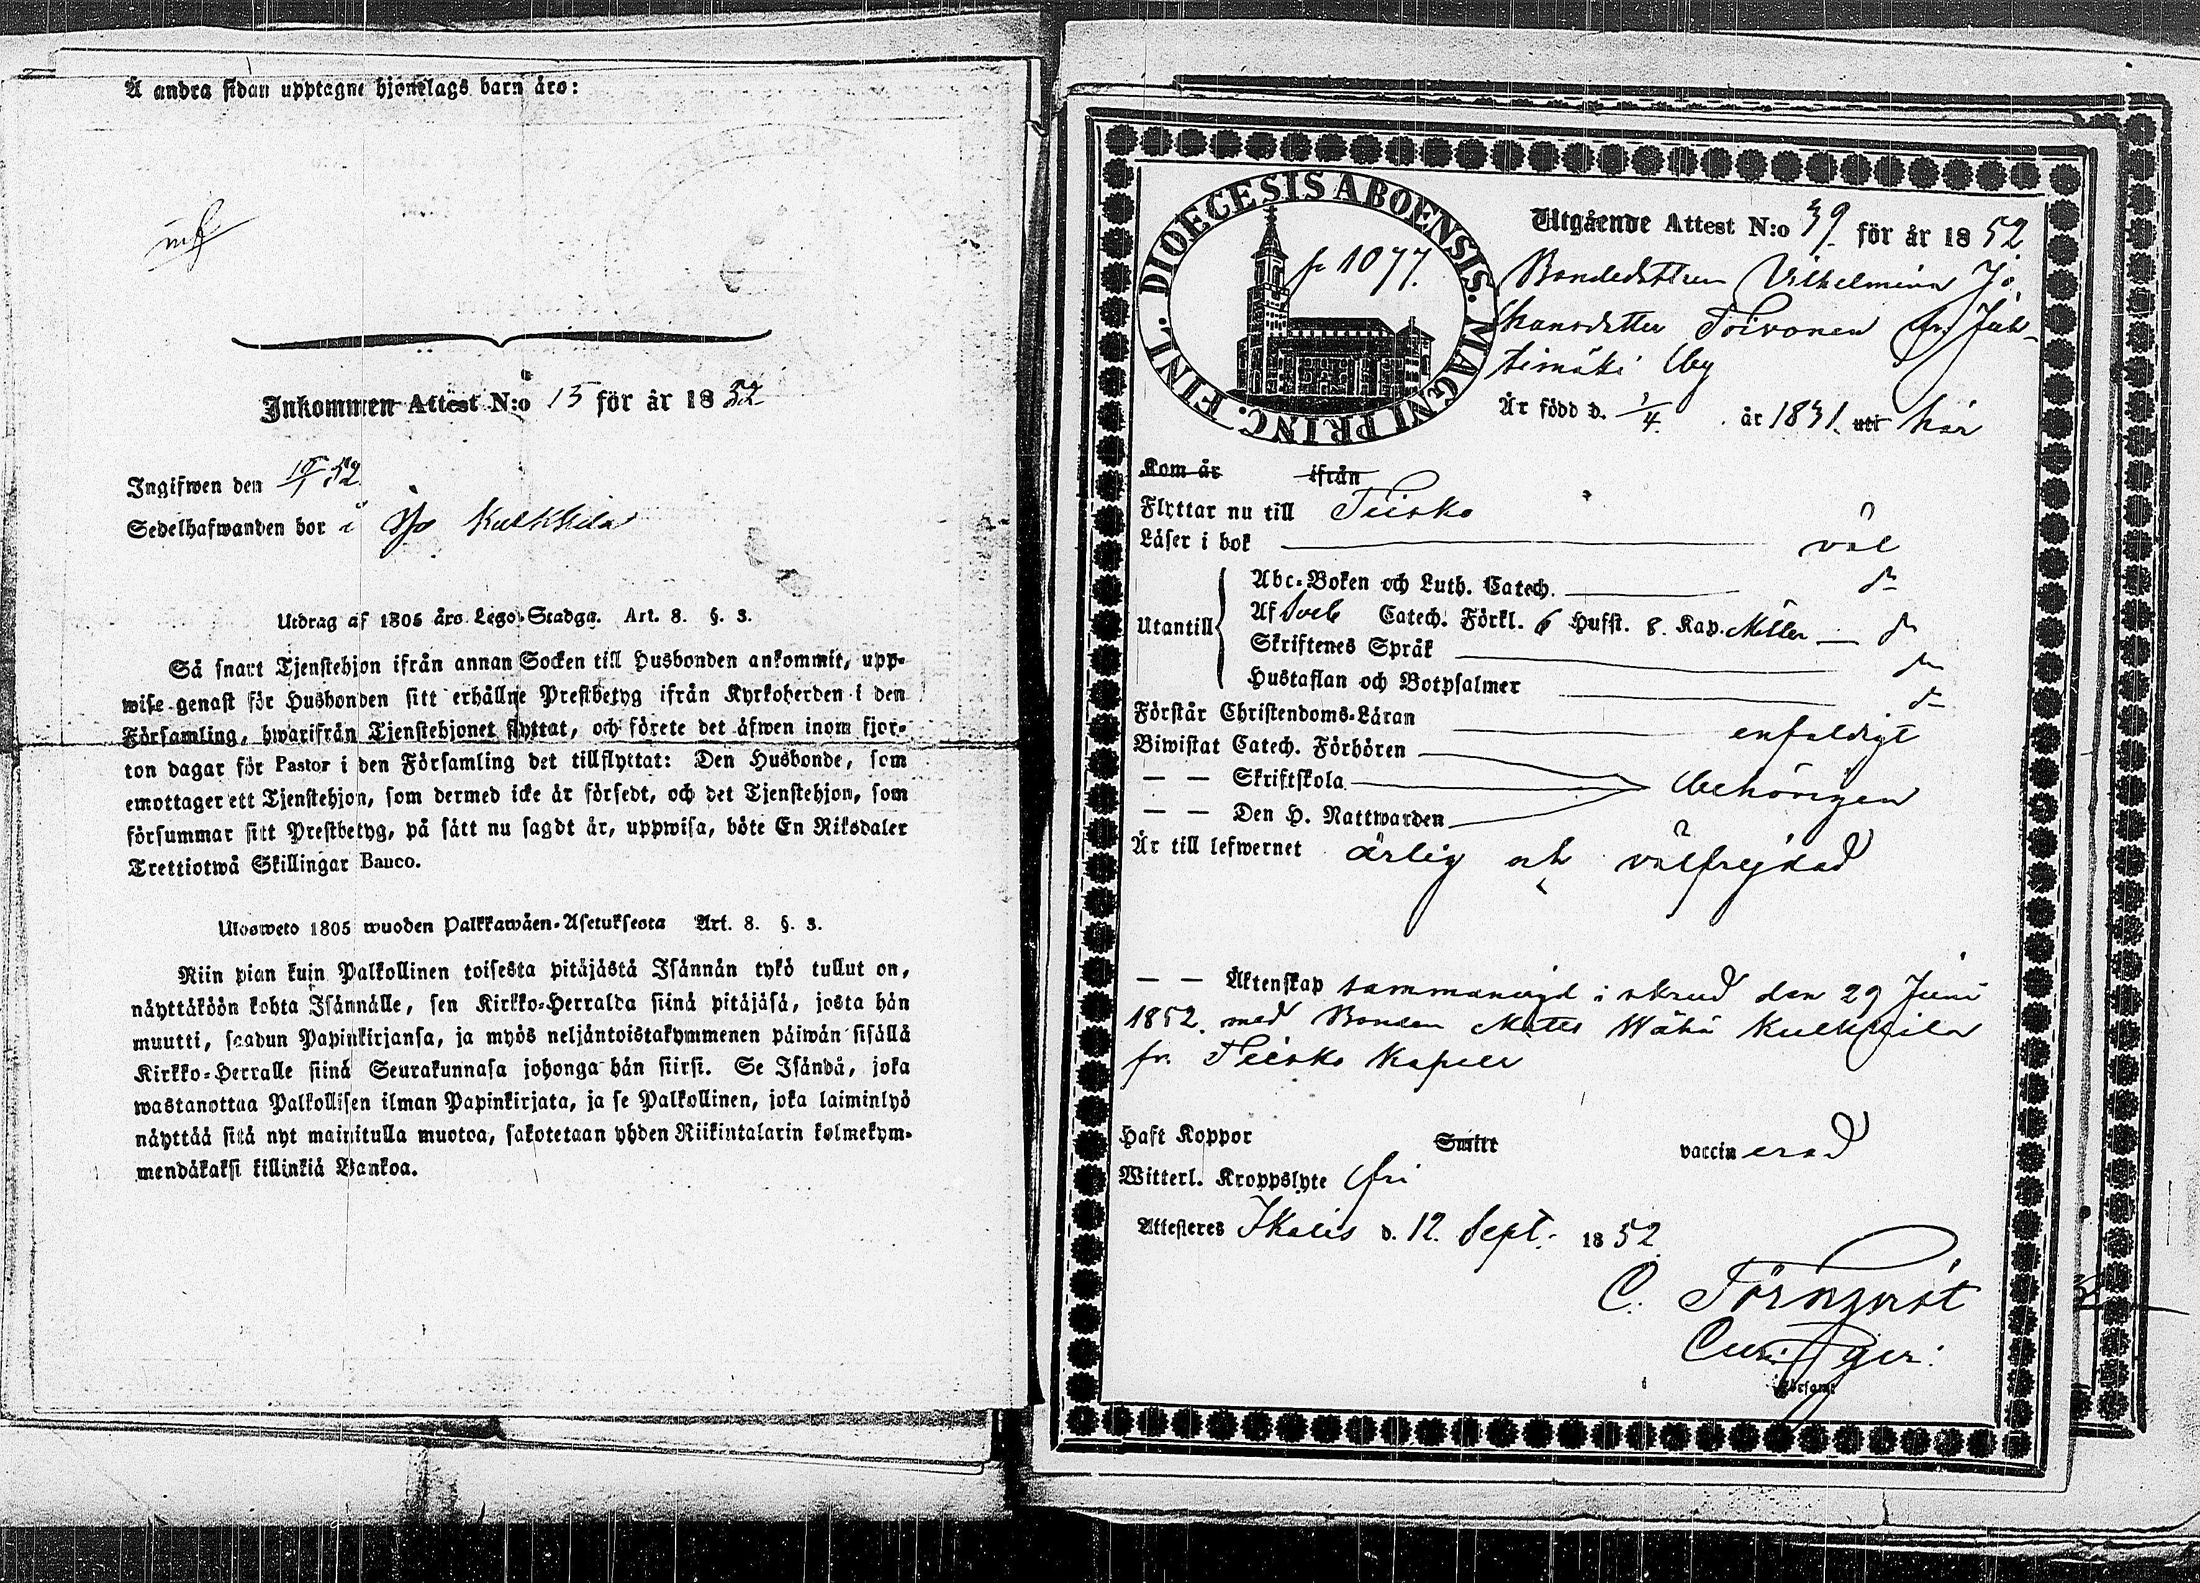 Å andra sidan upptagne hjonelags barn äro:
Inkommen Attest N:o 15 för år 1852
Ingifwen den 52
Sedelhafwanden bor i Kulkkila
Utdrag af 1805 års Lego-Stadga. Art. 8. §. 3.
Så snart Tjenstehjon ifrån annan Socken till Husbonden ankommit, upp-
wise genast för Husbonden sitt erhållne Prestbetyg ifrån Kyrkoherden i den
Församling, hwarifrån Tjenstehjonet flyttat, och förete det äfwen inom fjor-
ton dagar för Pastor i den Församling det tillflyttat: Den Husbonde, som
emottager ett Tjenstehjon, som dermed icke är försedt, och det Tjenstehjon, som
försummar sitt Prestbetyg, på sätt nu sagdt är, uppwisa, böte En Riksdaler
Trettiotwå Skillingar Banco.
Ulosweto 1805 wuoden Palkkawäen-Asetuksesta Art. 8. §. 3.
Niin pian kuin Palkollinen toisesta pitäjästä Isännän tykö tullut on,
näyttäköön kohta Isännälle, sen Kirkko-Herralda siinä pitäjäsä, josta hän
muutti, saadun Papinkirjansa, ja myös neljäntoistakymmenen päiwän sisällä
Kirkko-Herralle siinä Seurakunnasa johonga hän siirsi. Se Isändä, joka
wastanottaa Palkollisen ilman Papinkirjata, ja se Palkollinen, joka laiminlyö
näyttää sitä nyt mainitulla muotoa, sakotetaan yhden Riikintalarin kolmekym-
mendäkaksi killinkiä Bankoa.
DIOECESIS ABOENSIS. MAGNI PRINC. FINL.
p 1077.
Utgående Attest N:o 39 för år 1852
Bondedottren Vilhelmina Jo
hansdotter Toivonen fr. Juh
timäki by
Är född d. 1/4 år 1831. uti här
Kom år ifrån
Flyttar nu till Teisko
Läser i bok väl
Utantill
Abc-Boken och Luth. Catech. do
Af Sveb Catech. Förkl. 6 Hufst. 8. Kap. Möller do
Skriftenes Språk do
Hustaflan och Botpsalmer do
Förstår Christendoms-Läran enfaldigt
Biwistat Catech. Förhören
— — Skriftskola behörigen
— — Den H. Nattwarden
Är till lefwernet ärlig och välfrejdad
— — Äktenskap sammanvigd i skrud den 29 Juni
1852. med Bonden Mats Wähä Kulkkila
fr. Teisko Kapell
Haft Koppor Smitt vaccinerad
Witterl. Kroppslyte fri
Attesteras Ikalis d. 12. Sept. 1852.
C. Törnqvist